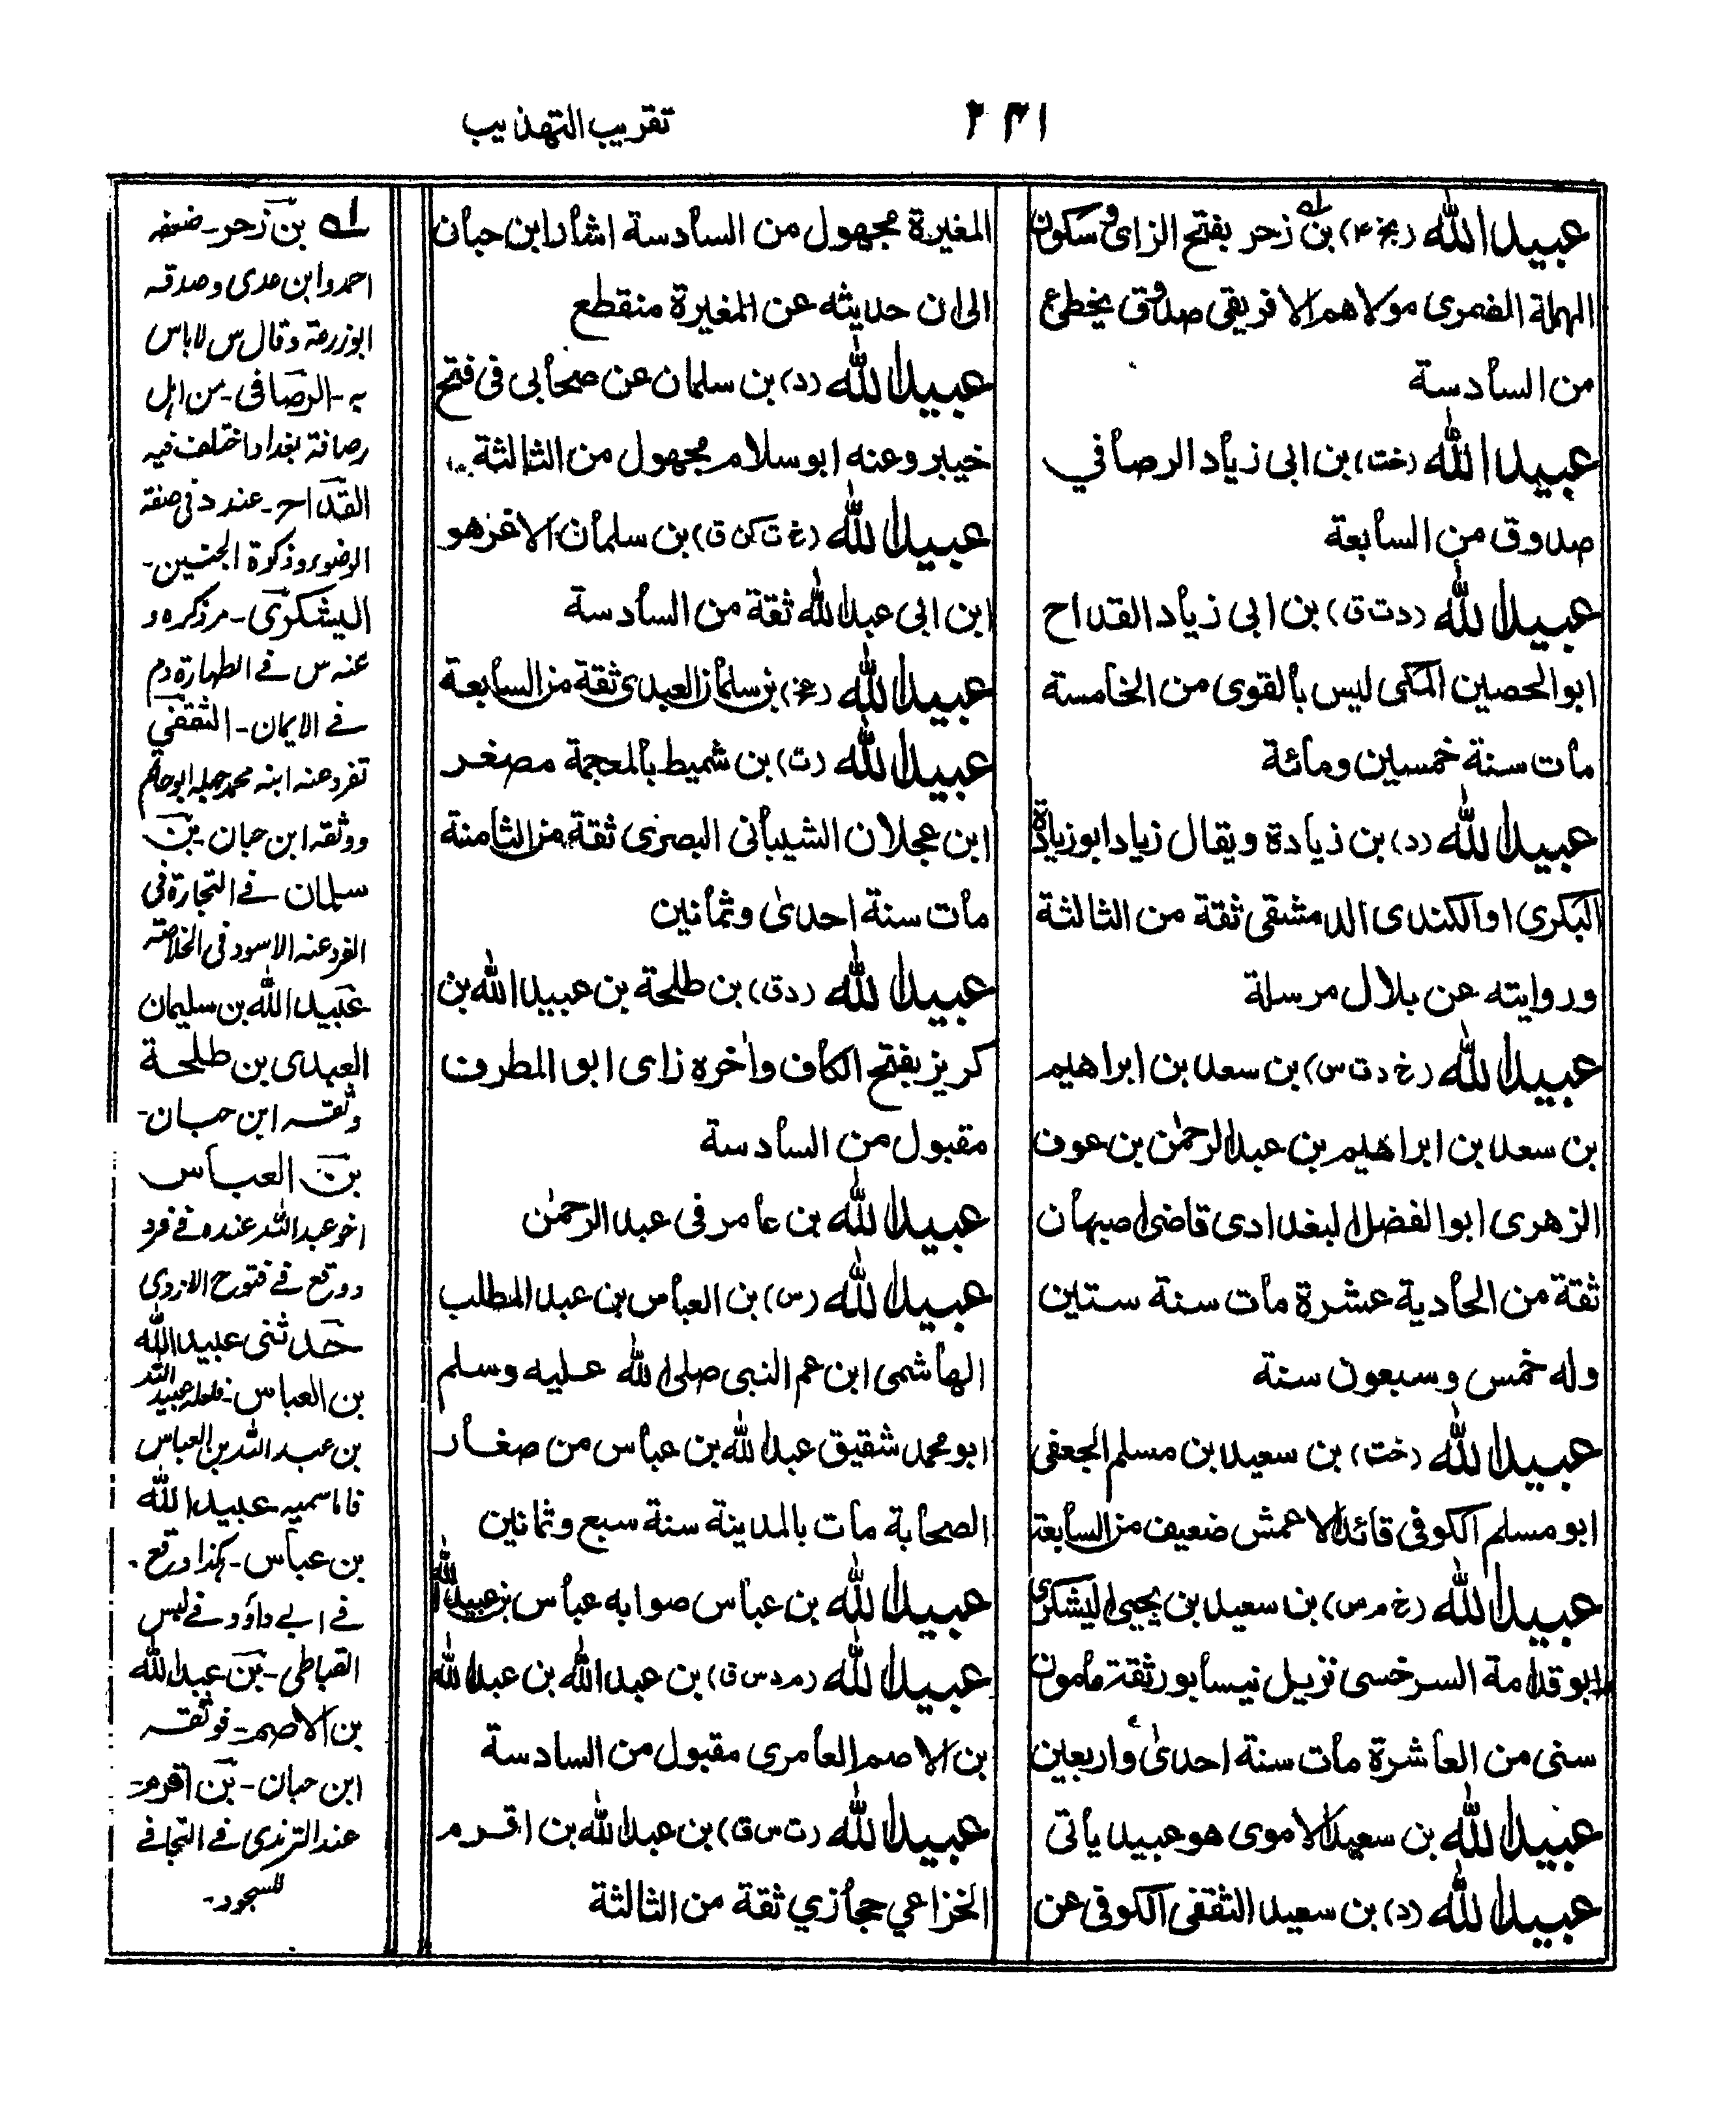 ۲۴۱
تقريب التهذيب
عبيد الله (بخ ۴) بن زحر بفتح الزاى وسكون
المهملة الضمرى مولاهم الافريقى صدوق يخطئ
من السادسة
عبيد الله (خت) بن ابى زياد الرصافي
صدوق من السابعة
عبيد الله (د ت ق) بن ابى زياد القداح
ابو الحصين المكى ليس بالقوى من الخامسة
مات سنة خمسين ومائة
عبيد الله (د) بن زيادة ويقال زياد ابو زيادة
البكرى او الكندى الدمشقى ثقة من الثالثة
وروايته عن بلال مرسلة
عبيد الله (خ د ت س) بن سعد بن ابراهيم
بن سعد بن ابراهيم بن عبد الرحمٰن بن عوف
الزهرى ابو الفضل البغدادى قاضى اصبهان
ثقة من الحادية عشرة مات سنة ستين
وله خمس وسبعون سنة
عبيد الله (خت) بن سعيد بن مسلم الجعفى
ابو مسلم الكوفى قائد الاعمش ضعيف من السابعة
عبيد الله (خ م س) بن سعيد بن يحيى اليشكرى
ابو قدامة السرخسى نزيل نيسابور ثقة مأمون
سنى من العاشرة مات سنة احدىٰ واربعين
عبيد الله بن سعيد الاموى هو عبيد يأتى
عبيد الله (د) بن سعيد الثقفى الكوفى عن
المغيرة مجهول من السادسة اشار ابن حبان
الى ان حديثه عن المغيرة منقطع
عبيد الله (د) بن سلمان عن صحابى فى فتح
خيبر وعنه ابو سلام مجهول من الثالثة
عبيد الله (خ ت كن ق) بن سلمان الاغر هو
ابن ابى عبد الله ثقة من السادسة
عبيد الله (عخ) بن سلمان العبدى ثقة من السابعة
عبيد الله (ت) بن شميط بالمعجمة مصغر
ابن عجلان الشيبانى البصرى ثقة من الثامنة
مات سنة احدىٰ وثمانين
عبيد الله (د ق) بن طلحة بن عبيد الله بن
كريز بفتح الكاف واٰخره زاى ابو المطرف
مقبول من السادسة
عبيد الله بن عامر فى عبد الرحمٰن
عبيد الله (س) بن العباس بن عبد المطلب
الهاشمى ابن عم النبى صلى الله عليه وسلم
ابو محمد شقيق عبد الله بن عباس من صغار
الصحابة مات بالمدينة سنة سبع وثمانين
عبيد الله بن عباس صوابه عباس بن عبيد الله
عبيد الله (م د س ق) بن عبد الله بن عبد الله
بن الاصم العامرى مقبول من السادسة
عبيد الله (ت س ق) بن عبد الله بن اقرم
الخزاعي حجازي ثقة من الثالثة
له بن زحر - ضعفه
احمد وابن مدى وصدقه
ابو زرعة وقال س لا باس
به - الرصافى - من اهل
رصافة بغداد اختلف فيه
القداح - عند د فى صفة
الوضوء وذكوة الجنين -
اليشكرى - مر ذكره و
عنه س فے الطهارة و م
فے الايمان - الثقفى
تفرد عنه ابنه محمد جهله ابو حاتم
ووثقه ابن حبان - بن
سلمان فے التجارة فى
الفرد عنه الاسود فى الخلاصة
عبيد الله بن سليمان
العبدى بن طلحة
وثقه ابن حبان -
بن العباس
اخو عبد الله عنده فے فرد
ووقع فے فتوح الازدى
حدثنى عبيد الله
بن العباس - فلعله عبيد الله
بن عبد الله بن العباس
فاما سميه عبيد الله
بن عباس - هكذا وقع
فے ابے داؤد فے لبس
القباطى - بن عبد الله
بن الاصم - فوثقه
ابن حبان - بن اقرم -
عند الترمذى فے التجافے
للسجود -